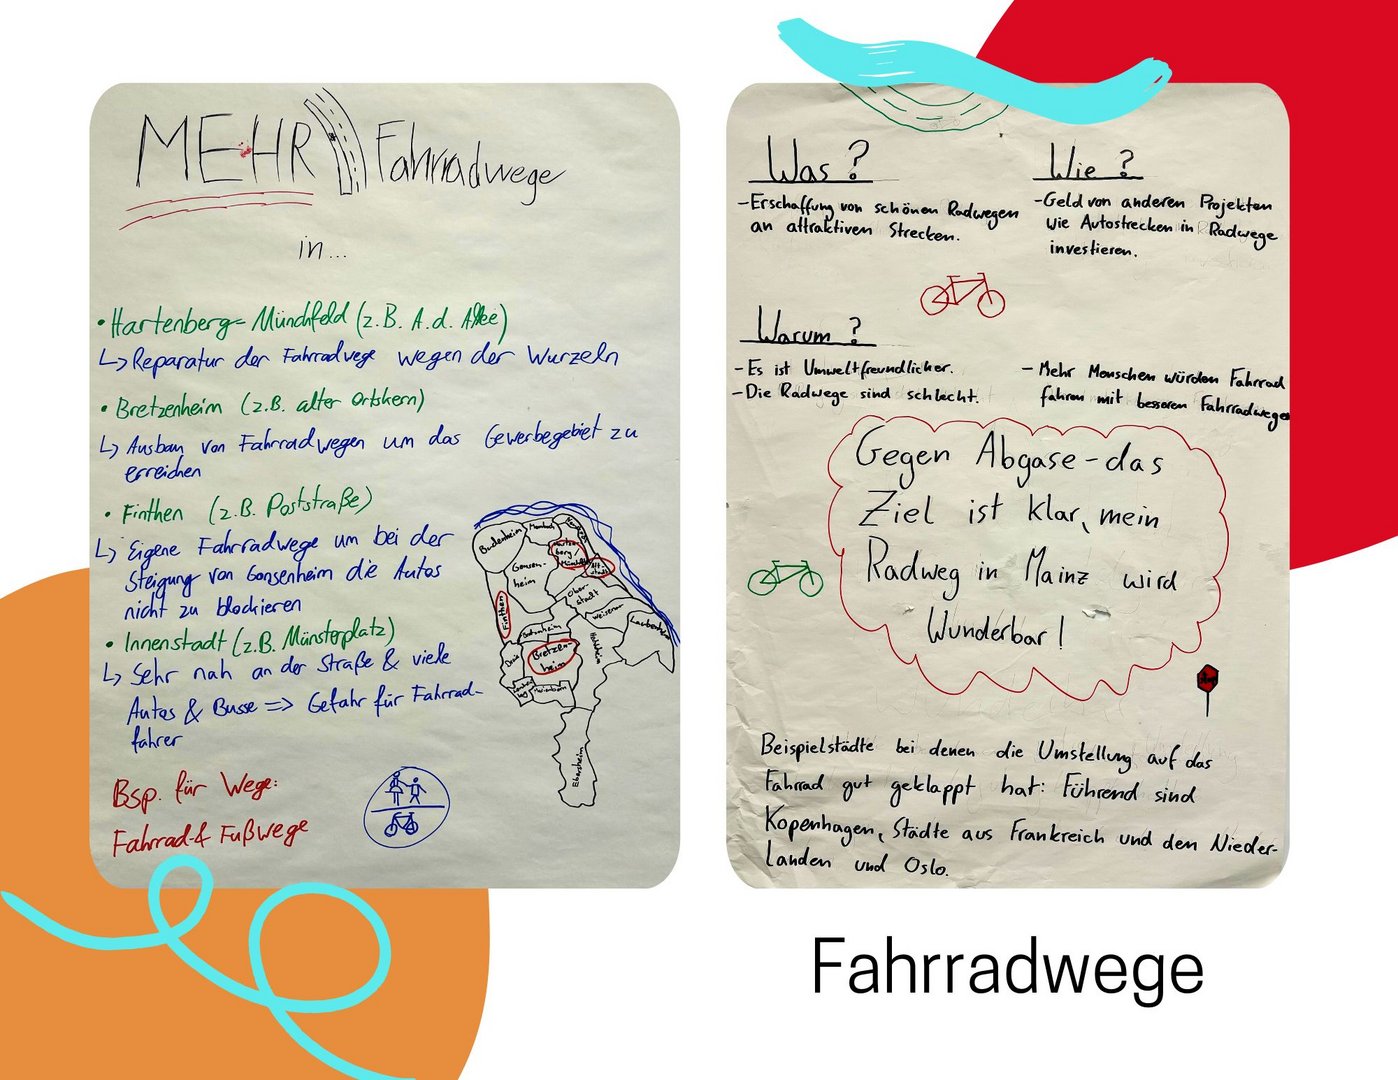 MEHR Fahrradwege
in...
• Hartenberg-Münchfeld (z.B. A.d. Allee)
↳ Reparatur der Fahrradwege wegen der Wurzeln
• Bretzenheim (z.B. alter Ortskern)
↳ Ausbau von Fahrradwegen um das Gewerbegebiet zu
erreichen
• Finthen (z.B. Poststraße)
↳ Eigene Fahrradwege um bei der
Steigung von Gonsenheim die Autos
nicht zu blockieren
• Innenstadt (z.B. Münsterplatz)
↳ Sehr nah an der Straße & viele
Autos & Busse => Gefahr für Fahrrad-
fahrer
Bsp. für Wege:
Fahrrad & Fußwege
Budenheim
Mombach
Gonsen-
heim
Hartenberg/
Münchfeld
Alt-
stadt
Ober-
stadt
Weisenau
Laubenheim
Finthen
Bretzen-
heim
Hechtsheim
Drais
Marienborn
Ebersheim
Was?
- Erschaffung von schönen Radwegen
an attraktiven Strecken.
Wie?
- Geld von anderen Projekten
wie Autostrecken in Radwege
investieren.
Warum?
- Es ist Umweltfreundlicher.
- Die Radwege sind schlecht.
- Mehr Menschen würden Fahrrad
fahren mit besseren Fahrradwegen
Gegen Abgase - das
Ziel ist klar, mein
Radweg in Mainz wird
Wunderbar!
Stop
Beispielstädte bei denen die Umstellung auf das
Fahrrad gut geklappt hat: Führend sind
Kopenhagen, Städte aus Frankreich und den Nieder-
landen und Oslo.
Fahrradwege